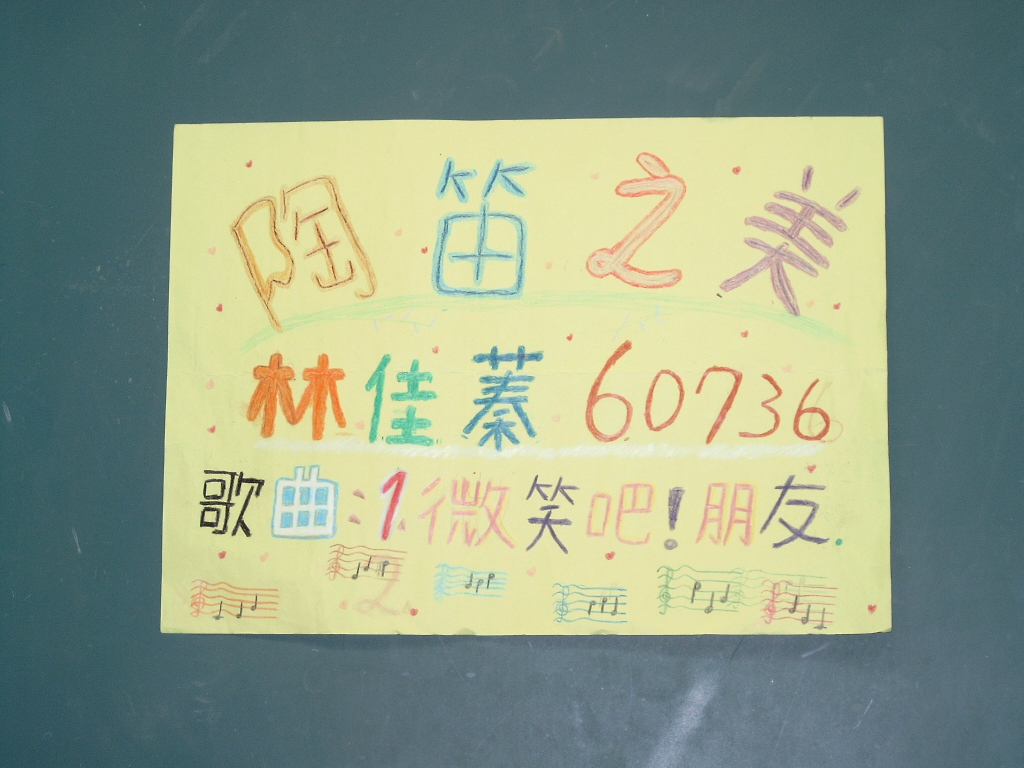 陶笛之美
林佳蓁 60736
歌曲:1微笑吧!朋友.